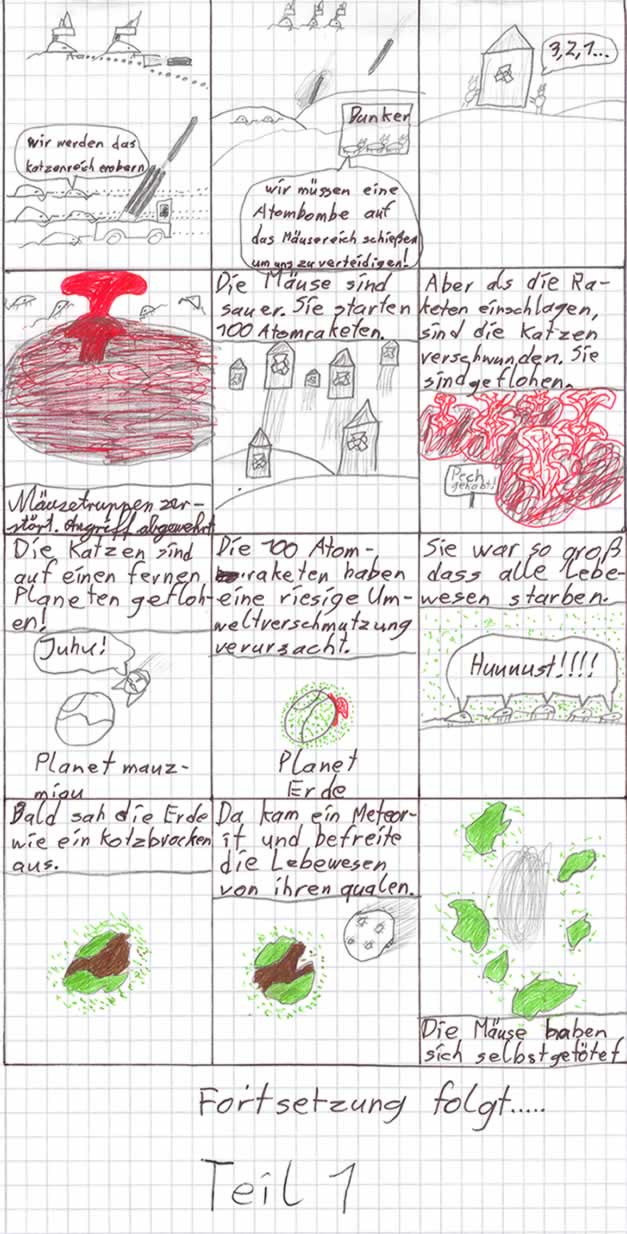 wir werden das
katzenreich erobern
Bunker
wir müssen eine
Atombombe auf
das Mäusereich schießen
um uns zu verteidigen!
3,2,1...
Mäusetruppen zer-
stört. Angriff abgewehrt
Die Mäuse sind
sauer. Sie starten
100 Atomraketen.
Aber als die Ra-
keten einschlagen,
sind die Katzen
verschwunden. Sie
sind geflohen.
Pech
gehabt!
Die Katzen sind
auf einen fernen
Planeten gefloh-
en!
Juhu!
Planet mauz-
miau
Die 100 Atom-
raketen haben
eine riesige Um-
weltverschmutzung
verursacht.
Planet
Erde
Sie war so groß
dass alle Lebe-
wesen starben.
Huuuust!!!!
Bald sah die Erde
wie ein Kotzbrocken
aus.
Da kam ein Meteor-
it und befreite
die Lebewesen
von ihren qualen.
Die Mäuse haben
sich selbst getötet
Fortsetzung folgt.....
Teil 1